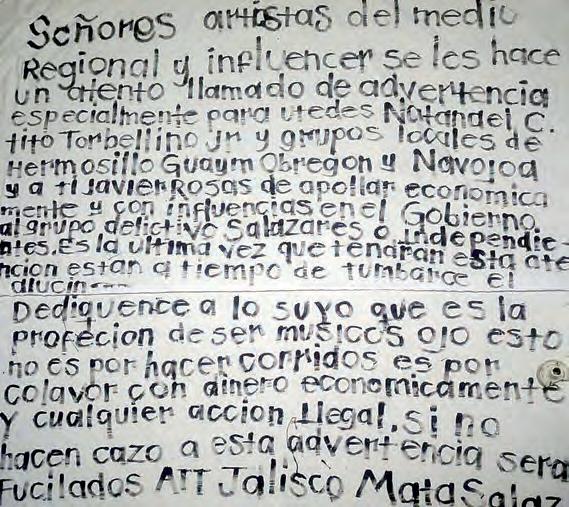 Señores artistas del medio
Regional y influencer se les hace
un atento llamado de advertencia
especialmente para utedes Natandel C.
tito Torbellino Jr y grupos locales de
Hermosillo Guaym Obregon y Navojoa
y a ti Javier Rosas de apollar economica
mente y con influencias en el Gobierno
al grupo delictivo Salazares o Independie-
ntes. Es la ultima vez que tendran esta ate
ncion estan a tiempo de tumbarce el
alucin---
Dediquence a lo suyo que es la
profecion de ser musicos ojo esto
no es por hacer corridos es por
colavor con dinero economicamente
y cualquier accion Ilegal. si no
hacen cazo a esta advertencia sera
Fucilados ATT Jalisco Mata Salaz